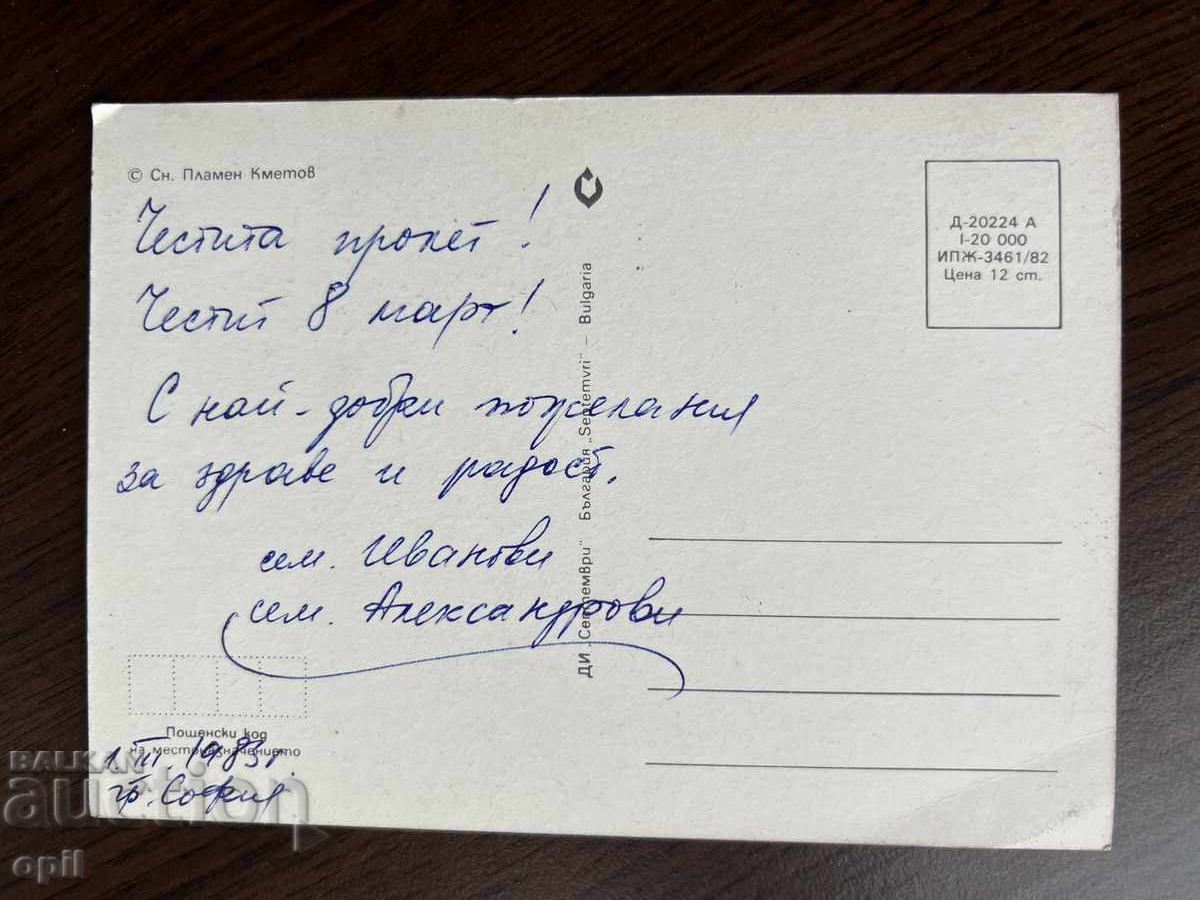 © Сн. Пламен Кметов
Честита пролет!
Честит 8 март!
С най-добри пожелания
за здраве и радост.
сем. Иванови
сем. Александрови
Пощенски код
на местоназначението
1.III.1983г.
гр. София
ДИ „Септември" България „Septemvri" – Bulgaria
Д-20224 А
I-20 000
ИПЖ-3461/82
Цена 12 ст.
BALKAN
auction
opil